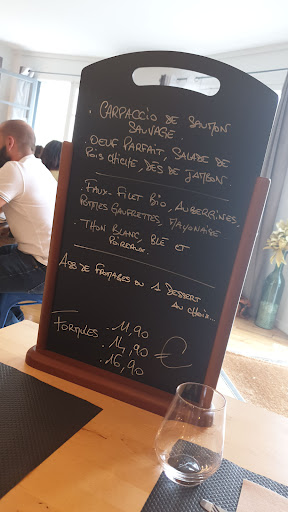 . CARPACCIO DE SAUMON
SAUVAGE.
. OEUF PARFAIT, SALADE DE
POIS CHICHE, DÉS DE JAMBON.
. FAUX-FILET BIO, AUBERGINES,
POMMES GAUFRETTES, MAYONAISE
. THON BLANC, BLÉ ET
POIREAUX.
ASS DE FROMAGES OU 1 DESSERT
AU CHOIX...
FORMULES . 11,90
. 14,90 €
. 16,90